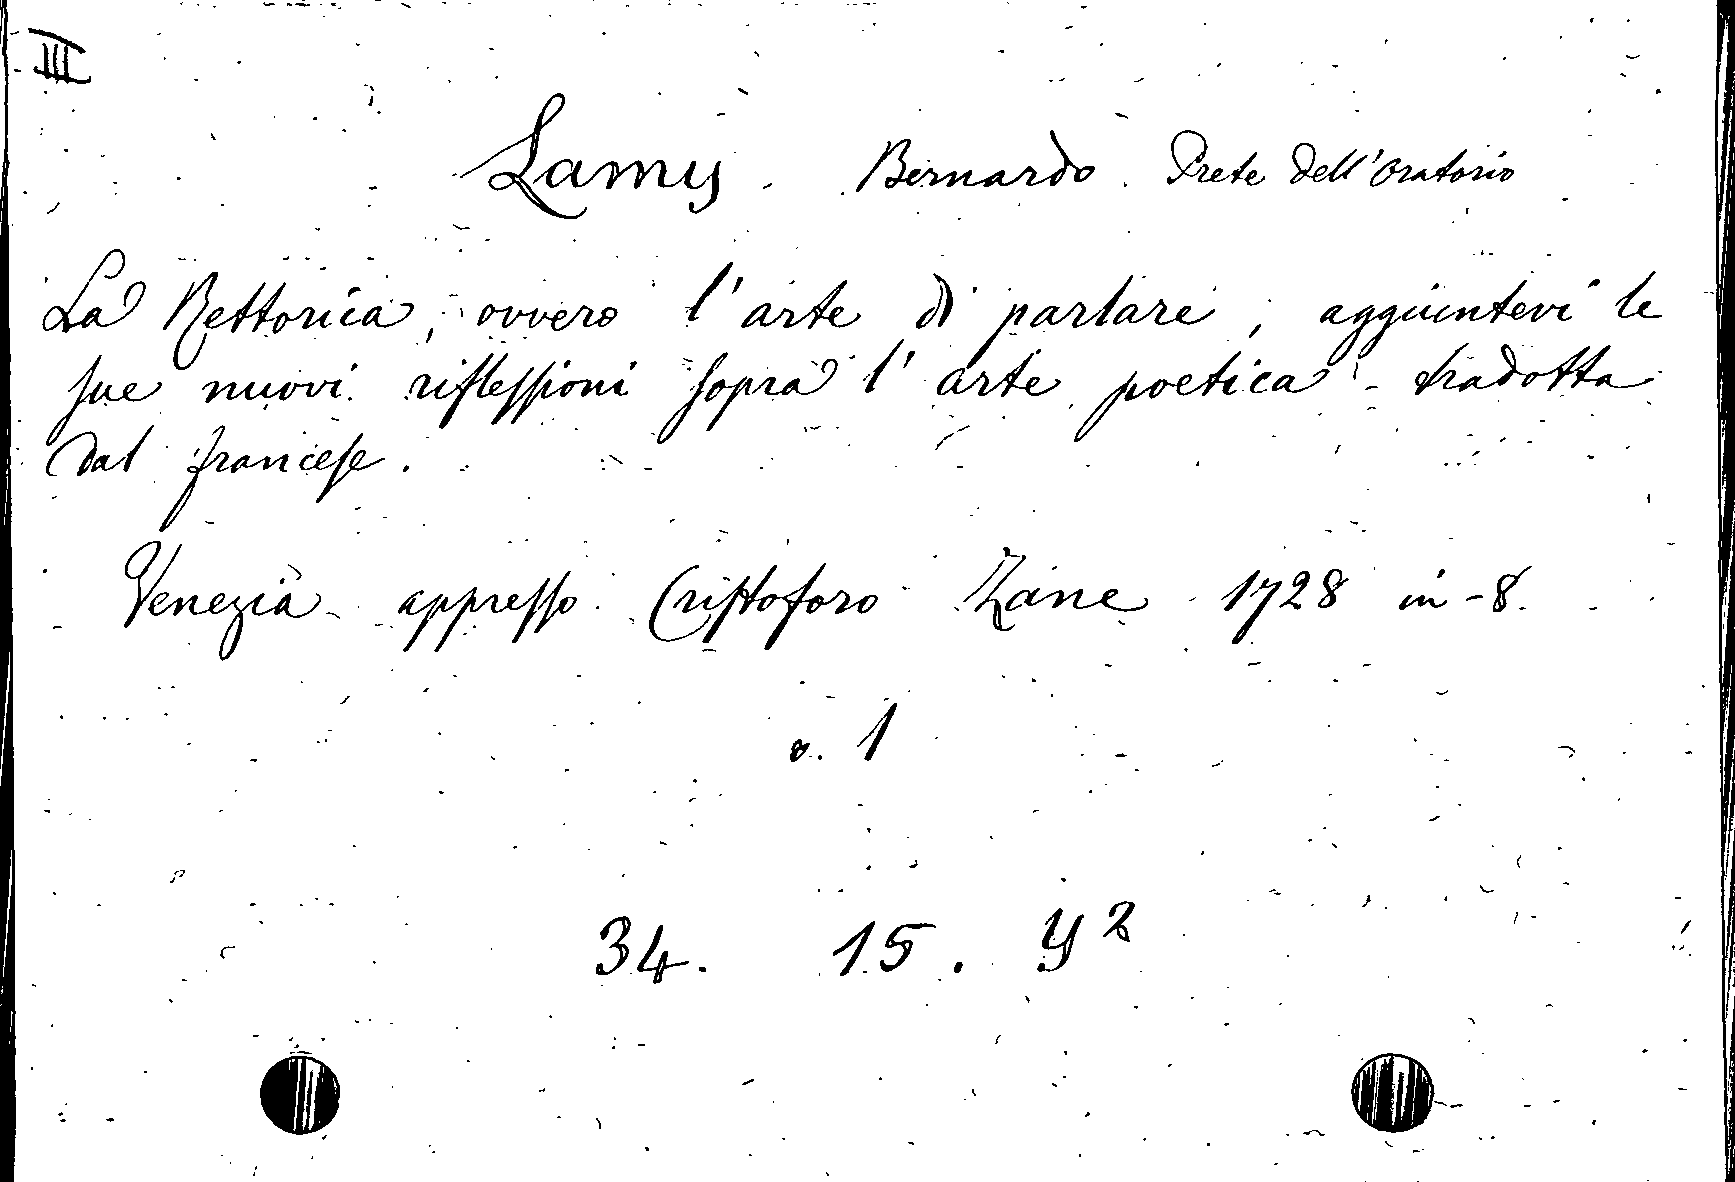 III
Lamy. Bernardo. Prete dell'Oratorio
La Rettorica, ovvero l'arte di parlare, aggiuntevi le
sue nuovi riflessioni sopra l'arte poetica - tradotta
dal francese.
Venezia appresso Cristoforo Zane 1728 in-8.
v. 1
34. 15. Y²